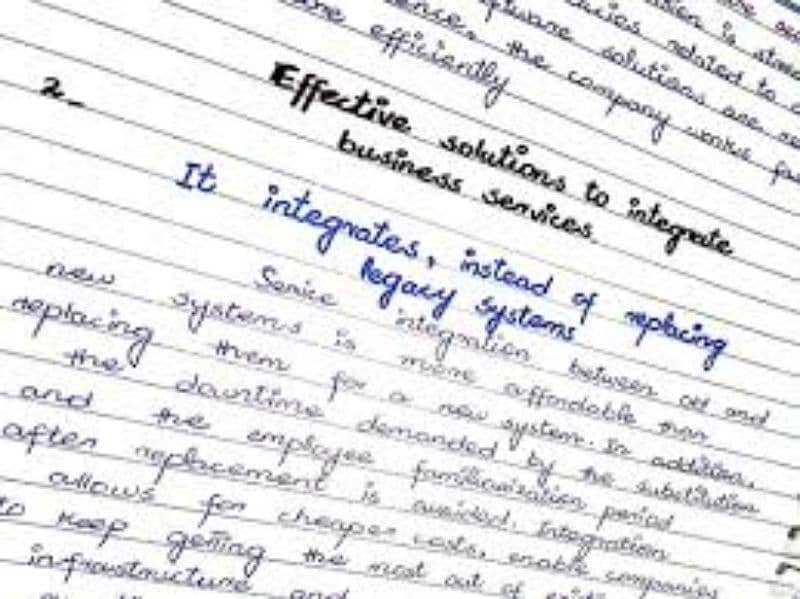 is stored
ware solutions related to
ence, the company works
efficiently
2_
Effective solutions to integrate
business services.
It integrates, instead of replacing
legacy systems
Service integration between old and
new systems is more affordable than
replacing them for a new system. In addition,
the downtime demanded by the substitution
and the employee familiarization period
after replacement is avoided. Integration
allows for cheaper costs, enable companies
to keep getting the most out of
infrastructure and